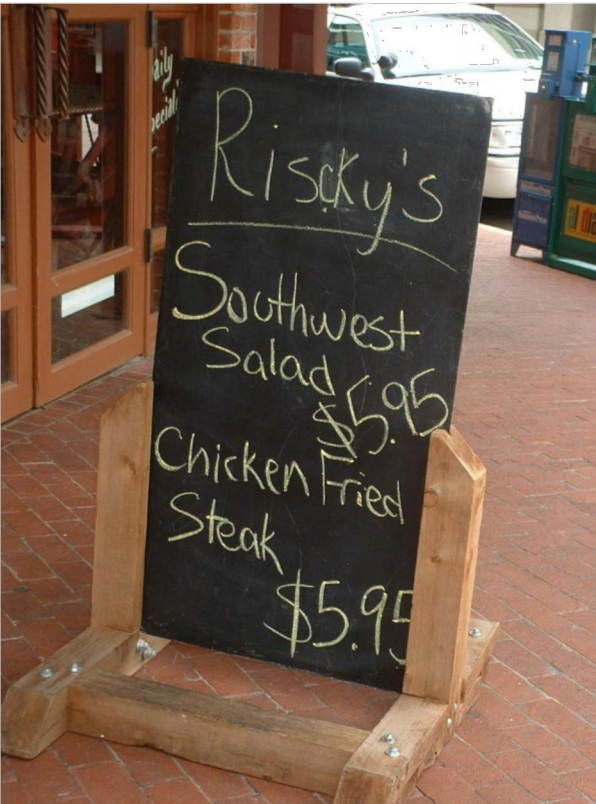 Daily
Specials
Riscky's
Southwest
Salad
$5.95
Chicken Fried
Steak
$5.95